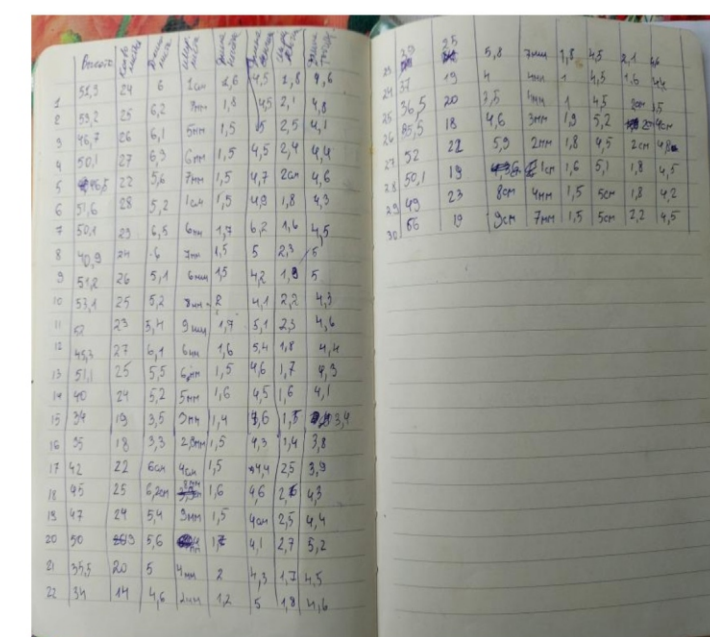 Высота
1 51,3 24 6 1см 2,6 4,5 1,8 4,6
2 53,2 25 6,2 7мм 1,8 4,5 2,1 4,8
3 46,7 26 6,1 5мм 1,5 5 2,5 4,1
4 50,1 27 6,3 6мм 1,5 4,5 2,4 4,4
5 46,5 22 5,6 7мм 1,5 4,7 2см 4,6
6 51,6 28 5,2 1см 1,5 4,9 1,8 4,3
7 50,1 29 6,5 6мм 1,7 6,2 1,6 4,5
8 40,9 24 6 7мм 1,5 5 2,3 5
9 51,2 26 5,1 6мм 1,5 4,2 1,9 5
10 53,1 25 5,2 8мм 2 4,1 2,2 4,3
11 52 23 5,4 9мм 1,7 5,1 2,3 4,6
12 45,3 27 6,1 6мм 1,6 5,4 1,8 4,4
13 51,1 25 5,5 6мм 1,5 4,6 1,7 4,3
14 40 24 5,2 5мм 1,6 4,5 1,6 4,1
15 34 19 3,5 3мм 1,4 4,6 1,5 3,4
16 35 18 3,3 2,8мм 1,5 4,3 1,4 3,8
17 42 22 6см 4см 1,5 4,4 2,5 3,9
18 45 25 6,2см 8мм 1,6 4,6 2,6 4,3
19 47 24 5,4 9мм 1,5 4см 2,5 4,4
20 50 5,6 4,1 2,7 5,2
21 35,5 20 5 4мм 2 4,3 1,7 4,5
22 34 14 4,6 2мм 1,2 5 1,8 4,6
23 39 25 5,8 7мм 1,8 4,5 2,1 4,6
24 37 19 4 4мм 1 4,5 1,6 4,4
25 36,5 20 3,5 4мм 1 4,5 2см 5
26 45,5 18 4,6 3мм 1,9 5,2 4см
27 52 22 5,9 2мм 1,8 4,5 2см 4,8
28 50,1 19 1см 1,6 5,1 1,8 4,5
29 49 23 8см 4мм 1,5 5см 1,8 4,2
30 56 19 9см 7мм 1,5 5см 2,2 4,5